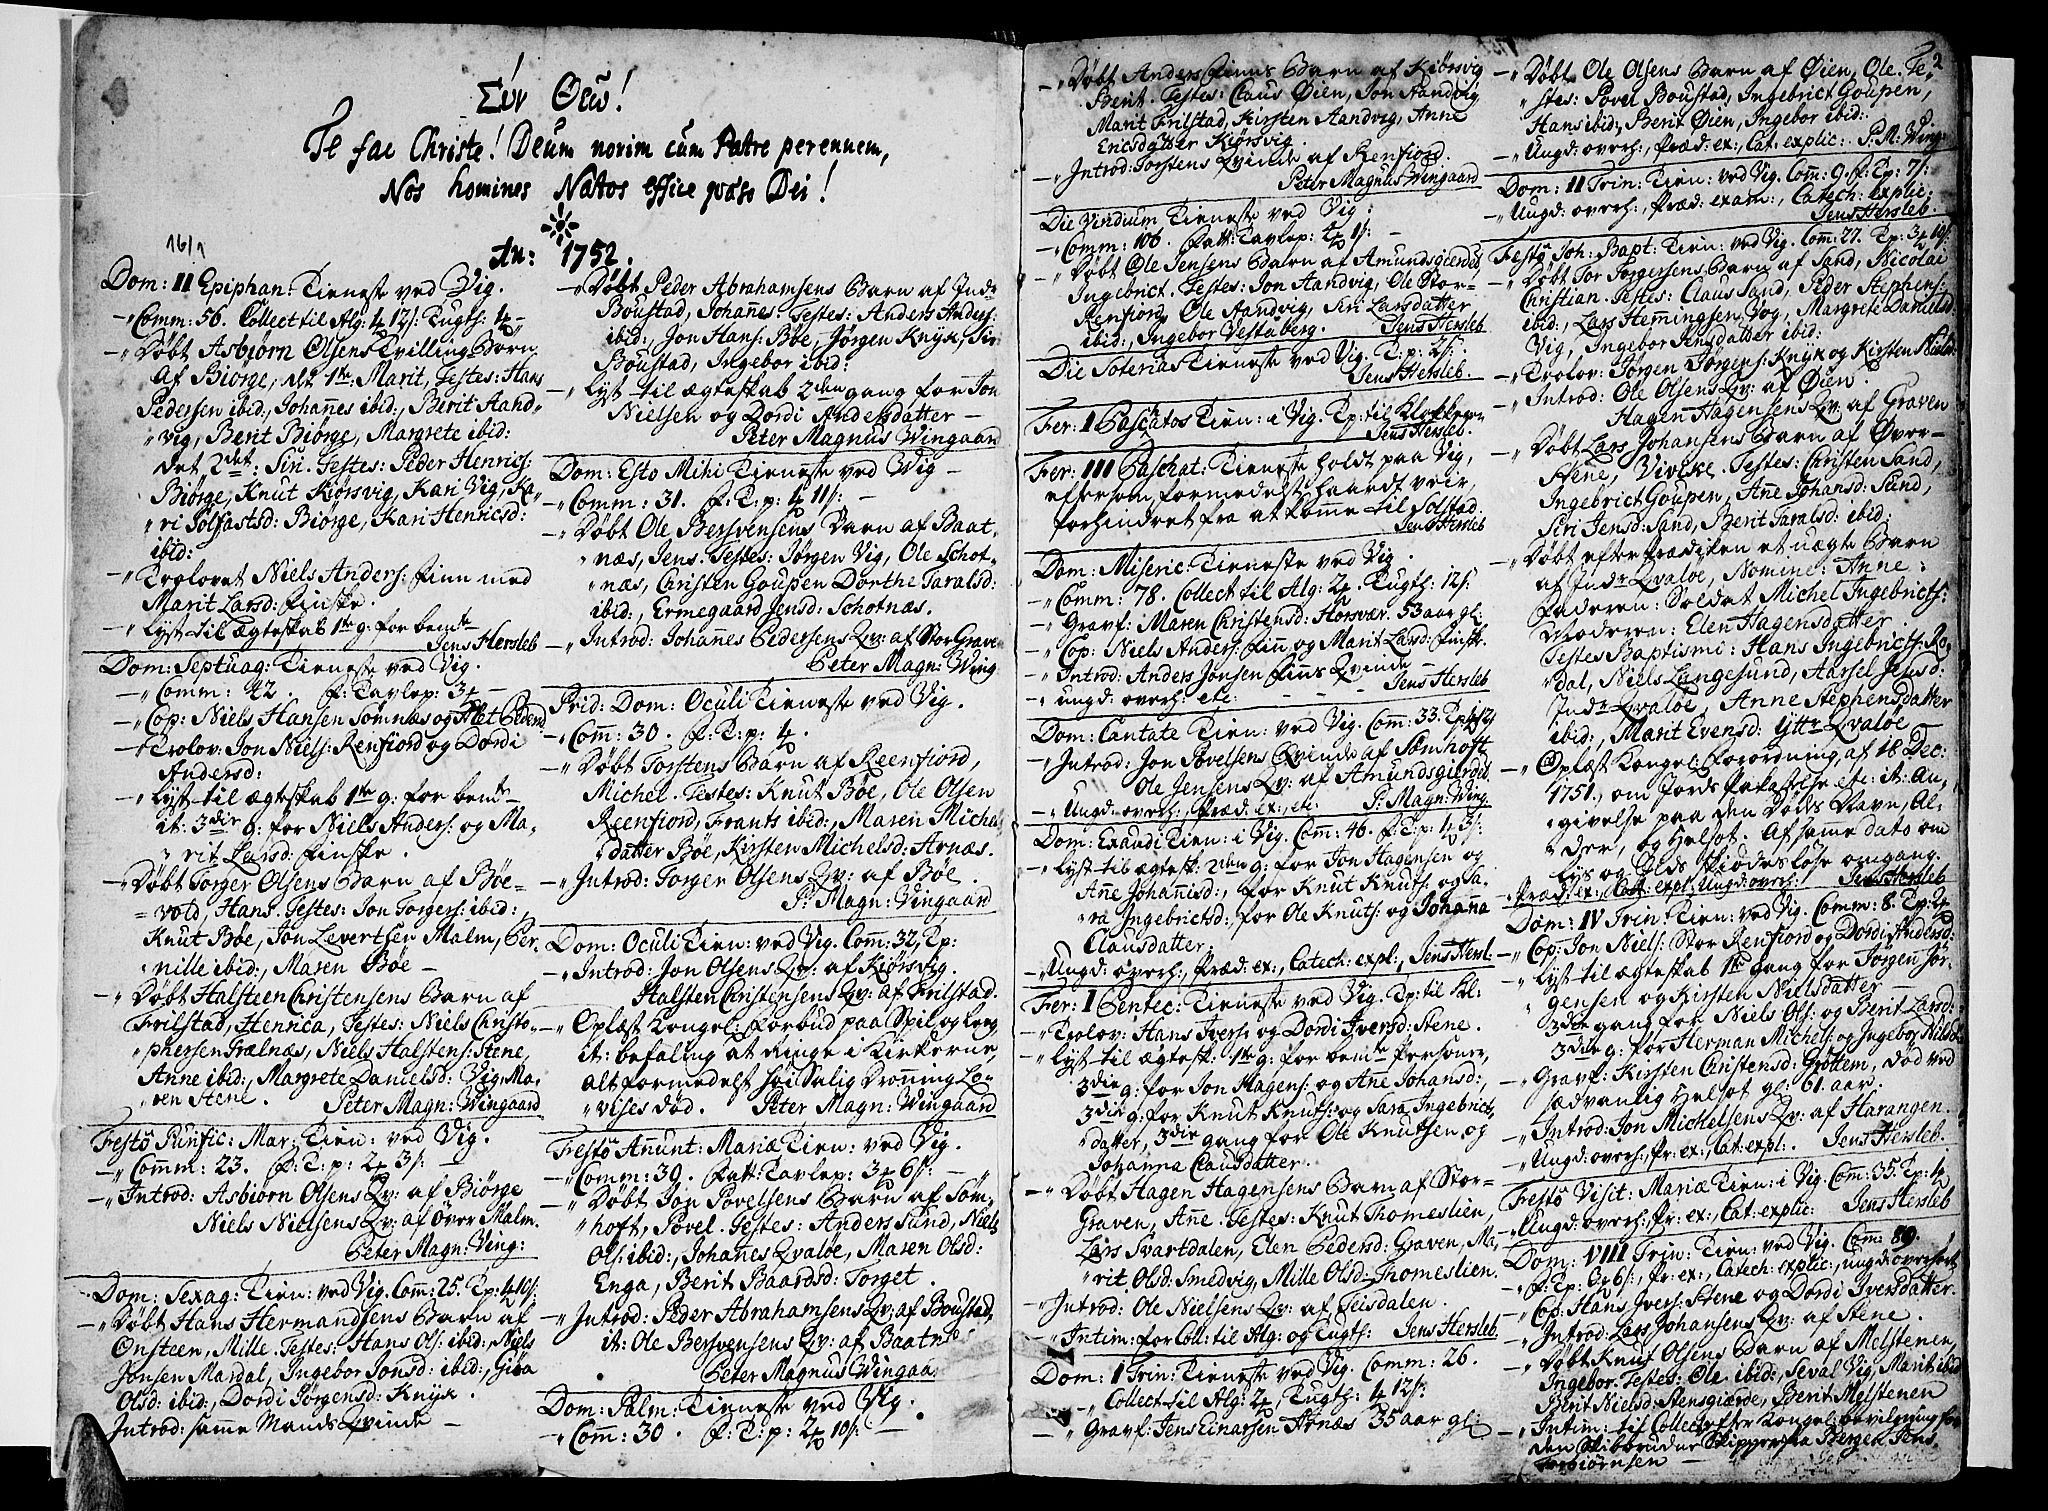 Σύν Θεῶ!
Te fac Christe! Deum norim cum Patre perennem,
Nos homines Natos effice qvæso Dei!
16/1
An: 1752.
Dom: II Epiphan: Tieneste ved Vig.
Comm: 56. Collect til Alg:
Døbt Asbiørn Olsens Tvilling Børn
af Biørge, det 1te: Marit, Testes: Hans
Pedersen ibid:, Johañes ibid:, Berit Aand
vig, Berit Biørge, Margrete ibid:
det 2det: Siri. Testes: Peder Henrics:
Biørge, Knut Kiørsvig, Kari Vig, Ka
ri Solfastsd: Biørge, Kari Henricsd:
ibid:
Trolovet Niels Anders: Finn med
Marit Larsd: Finske.
Lyst til Ægteskab 1te g: for bemte
Jens Hersleb
Dom: Septuag: Tieneste ved Vig.
Comm: 22. F: Tavlep: 3
Cop: Niels Hansen Sømnæs og Alet Pedersd
Trolov: Jon Niels: Renfiord og Dordi
Andersd:
Lyst til ægteskab 1te g: for bemte
it: 3die g: for Niels Anders: og Ma
rit Larsd: Finske.
Døbt Torger Olsens Barn af Bøe
vold, Hans. Testes: Jon Torgers: ibid:,
Knut Bøe, Jon Levertsen Malm, Per
nille ibid:, Maren Bøe
Døbt Halsteen Christensens Barn af
Frilstad, Henrica, Testes: Niels Christo
phersen Trælnæs, Niels Halstens: Stene,
Anne ibid:, Margrete Danielsd: Vig, Ma
ren Stene. Peter Magn: Wingaard
Festô Purific: Mar: Tien: ved Vig.
Comm: 23. F: T: p: 2 3/:
Introd: Asbiørn Olsens Qv: af Biørge
Niels Nielsens Qv: af over Malm.
Peter Magn: Wing:
Dom: Sexag: Tien: ved Vig. Comm: 25.
Døbt Hans Hermandsens Barn af
Onsteen, Mille. Testes: Hans Ols: ibid:, Niels
Jonsen Mardal, Ingebor Jonsd: ibid:, Giøa
Olsd: ibid:, Dordi Jørgensd: Knyx.
Introd: samme Mands Qvinde
Døbt Peder Abrahamsens Barn af Indr
Boustad, Johañes. Testes: Anders Anders:
ibid:, Jon Hans: Bøe, Jørgen Knyx, Siri
Boustad, Ingebor ibid:
Lyst til ægteskab 2den gang for Jon
Nielsen og Dordi Andersdatter
Peter Magnus Wingaard
Dom: Esto Mihi Tieneste ved Vig
Comm: 31. F: T: p: 4 11/:
Døbt Ole Bersvensens Barn af Baat
næs, Jens. Testes: Jørgen Vig, Ole Schot
næs, Christen Goupen, Dorthe Taralsd:
ibid:, Ermegaard Jensd: Schotnæs.
Introd: Johannes Pedersens Qv: af Stor Graven
Peter Magn: Wing
Prid: Dom: Oculi Tieneste ved Vig.
Comm: 30. F: T: p: 4.
Døbt Torstens Barn af Reenfiord,
Michel. Testes: Knut Bøe, Ole Olsen
Reenfiord, Frants ibid:, Maren Michels
datter Bøe, Kirsten Michelsd: Arnæs.
Introd: Torger Olsens Qv: af Bøe.
P: Magn: Wingaard
Dom: Oculi Tien: ved Vig. Comm: 32, Tp:
Introd: Jon Olsens Qv: af Kiørsvig.
Halsten Christensens Qv: af Frilstad.
Oplæst Kongel: Forbud paa Spil og Leeg
it: befaling at Ringe i Kirkerne,
alt formedelst høi Salig Dronning Lou
vises død. Peter Magn: Wingaard
Festô Añunt: Mariæ Tien: ved Vig.
Comm: 39. Fatt: Tavlep: 3 6/:
Døbt Jon Povelsens Barn af Søm
hoft, Povel. Testes: Anders Sund, Niels
Ols: ibid:, Johañes Qvaløe, Maren Olsd:
Enga, Berit Baardsd: Torget.
Introd: Peder Abrahamsens Qv: af Boustad,
it: Ole Bersvensens Qv: af Baatnæs
Peter Magnus Wingaa
Dom: Palm: Tieneste ved Vig.
Com: 30. F: T: p: 2 10/:
Døbt Anders Finns Barn af Kiørsvig
Berit. Testes: Claus Øien, Jon Aandvig,
Marit Frilstad, Kirsten Aandvig, Anne
Ericsdatter Kiørsvig.
Introd: Torstens Qvinde af Renfiord.
Peter Magnus Wingaard
Die Viridium Tieneste ved Vig:
Comm: 106. Fatt: Tavlep: 4 1/:
Døbt Ole Jensens Barn af Amundsgierdet,
Ingebrict. Testes: Jon Aandvig, Ole Stor
Renfiord, Ole Aandvig, Siri Larsdatter
ibid:, Ingebor Vestaberg. Jens Hersleb
Die Soterias Tieneste ved Vig. T: p: 2/:
Jens Hersleb.
Fer: I Pascatos Tien: i Vig. Tp: til Klokkeren
Jens Hersleb.
Fer: III Paschat: Tieneste holdt paa Vig,
eftersom formedelst haardt veir,
forhindret fra at komme til Solstad.
Jens Hersleb
Dom: Miseric: Tieneste ved Vig.
Comm: 78. Collect til Alg: 2. Tugth: 12/:
Gravf: Maren Christensd: Horsvær. 53 aar gl:
Cop: Niels Anders: Finn og Marit Larsd: Finsk.
Introd: Anders Jonsen Finns Qvinde
ungd: overh: etc: Jens Hersleb
Dom: Cantate Tien: ved Vig. Com: 33.
Introd: Jon Povelsens Qvinde af Sømhoft
Ole Jensens Qv: af Amundsgierdet.
Ungd: overh:, Præd: ex:, etc. P: Magn: Wing
Dom: Exaudi Tien: i Vig. Comm: 46. F: T: p: 4 3/:
Lyst til ægtesk: 2den g: for Jon Hagensen og
Añe Johañisd:, for Knut Knuts: og Sa
ra Ingebrictsd: for Ole Knuts: og Johaña
Clausdatter.
Ungd: overh:, Præd: ex:, Catech: expl:, Jens Hersl:
Fer: I Pentec: Tieneste ved Vig. Tp: til Kl:
Trolov: Hans Ivers: og Dordi Iversd: Stene.
Lyst til ægtesk: 1te g: for bemte Personer,
3die g: for Jon Hagens: og Añe Johansd:,
3die g: for Knut Knuts: og Sara Ingebricts
datter, 3die gang for Ole Knutsen og
Johanna Clausdatter.
Døbt Hagen Hagensens Barn af Stor
Graven, Añe. Testes: Knut Thomeslien,
Lars Svartdalen, Elen Pedersd: Graven, Ma
rit Olsd: Smedvig, Mille Olsd: Thomeslien.
Introd: Ole Nielsens Qv: af Teisdalen.
Intim: for Coll: til Alg: og Tugth: Jens Hersleb.
Dom: I Trin: Tieneste ved Vig. Comm: 26.
Collect til Alg: 2, Tugth: 4 12/:
Gravf: Jens Einarsen Arnæs 35 aar gl:
2
Døbt Ole Olsens Barn af Øien, Ole. Te
stes: Povel Boustad, Ingebrict Goupen,
Hans ibid:, Berit Øien, Ingebor ibid:
Ungd: overh:, Præd: ex:, Cat: explic: P: M: Wing:
Dom: II Trin: Tien: ved Vig. Comm: 9. F: Tp: 7/:
Ungd: overh:, Præd: exam:, Catech: explic:
Jens Hersleb:
Festô Joh: Bapt: Tien: ved Vig. Com: 27.
Døbt Tor Torgersens Barn af Sand, Nicolai
Christian. Testes: Claus Sand, Peder Stephens:
ibid:, Lars Hemingsen Vog, Margrete Danielsd
Vig, Ingebor Jensdatter ibid:
Trolov: Jørgen Jørgens: Knyx og Kirsten Nielsd:
Introd: Ole Olsens Qv: af Øien.
Hagen Hagensens Qv: af Graven
Døbt Lars Johansens Barn af Øver
Stene, Vivike. Testes: Christen Sand,
Ingebrict Goupen, Añe Johansd: Sund,
Siri Jensd: Sand, Berit Taralsd: ibid:
Døbt efter Prædiken et uægte Barn
af Indr Qvaløe, Nomine: Anne:
Faderen: Soldat Michel Ingebricts:
Moderen: Elen Hagensdatter.
Testes Baptismi: Hans Ingebricts: Ro
dal, Niels Langesund, Aarsel Jensd:
Indr Qvaløe, Anne Stephensdatter
ibid:, Marit Evensd: Yttr Qvaløe
Oplæst Kongel: Forordning af 18 Dec:
1751., om Jords Paakastelse etc: it: An
givelse paa den Døds Navn, Al
der, og Helsot. Af same dato om
Lys og Ilds skiødesløse omgang.
Præd: ex:, Cat: expl: Ungd: overh: Jens Hersleb
Dom: IV Trin: Tien: ved Vig. Comm: 8.
Cop: Jon Niels: Stor Renfiord og Dordi Andersd:
Lyst til ægteskab 1te gang for Jørgen Jør
gensen og Kirsten Nielsdatter
3die gang for Niels Ols: og Berit Larsd:
3die g: for Herman Michels: og Ingebor Nilsd:
Gravf: Kirsten Christensd: Grøttem, død ved
sædvanlig Helsot gl: 61 aar.
Introd: Jon Michelsens Qv: af Harangen.
Ungd: overh:, Pr: ex:, Cat: expl:. Jens Hersleb.
Festô Visit: Mariæ Tien: i Vig. Com: 35.
Ungd: overh:, Pr: ex:, Cat: explic: Jens Hersleb
Dom: VIII Trin: Tien: ved Vig. Com: 89.
F: Tp: Ort 6/:, Pr: ex:, Catech: explic:, ungd: overhørt
Cop: Hans Ivers: Stene og Dordi Iversdatter.
Introd: Lars Johansens Qv: af Stene.
Døbt Knut Olsens Barn af Melstenen,
Ingebor. Testes: Ole ibid:, Seval Vig, Marit ibid
Berit Nielsd: Stensgierde, Berit Melstenen
Intim: til Collect efter Kongel: bevilgning for
den Skibbrudne Skipper fra Bergen Jens
Torbiørnsen